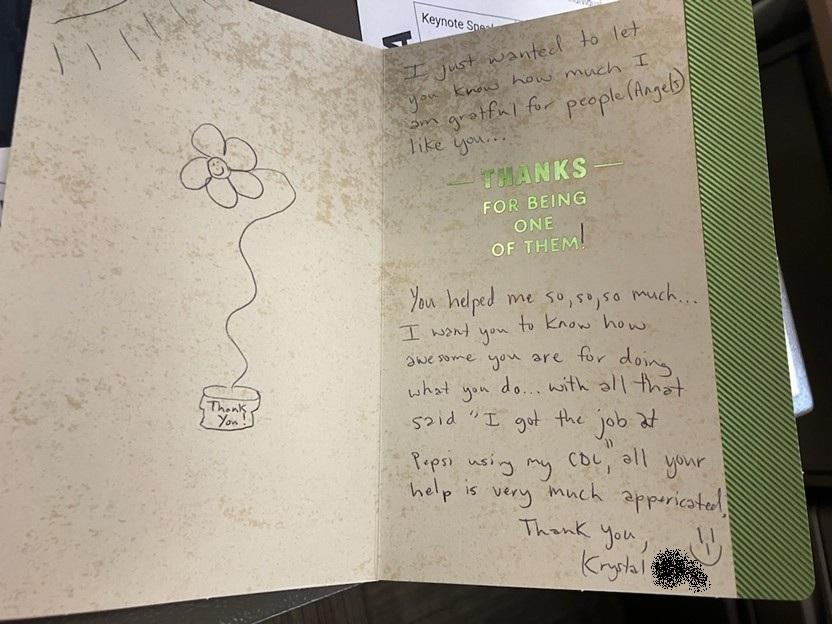 Keynote Spea
Thank
You!
I just wanted to let
you know how much I
am gratful for people (Angels)
like you...
THANKS
FOR BEING
ONE
OF THEM!
You helped me so, so, so much...
I want you to know how
awesome you are for doing
what you do... with all that
said "I got the job at
Pepsi using my CDL", all your
help is very much appericated,
Thank you,
Krystal